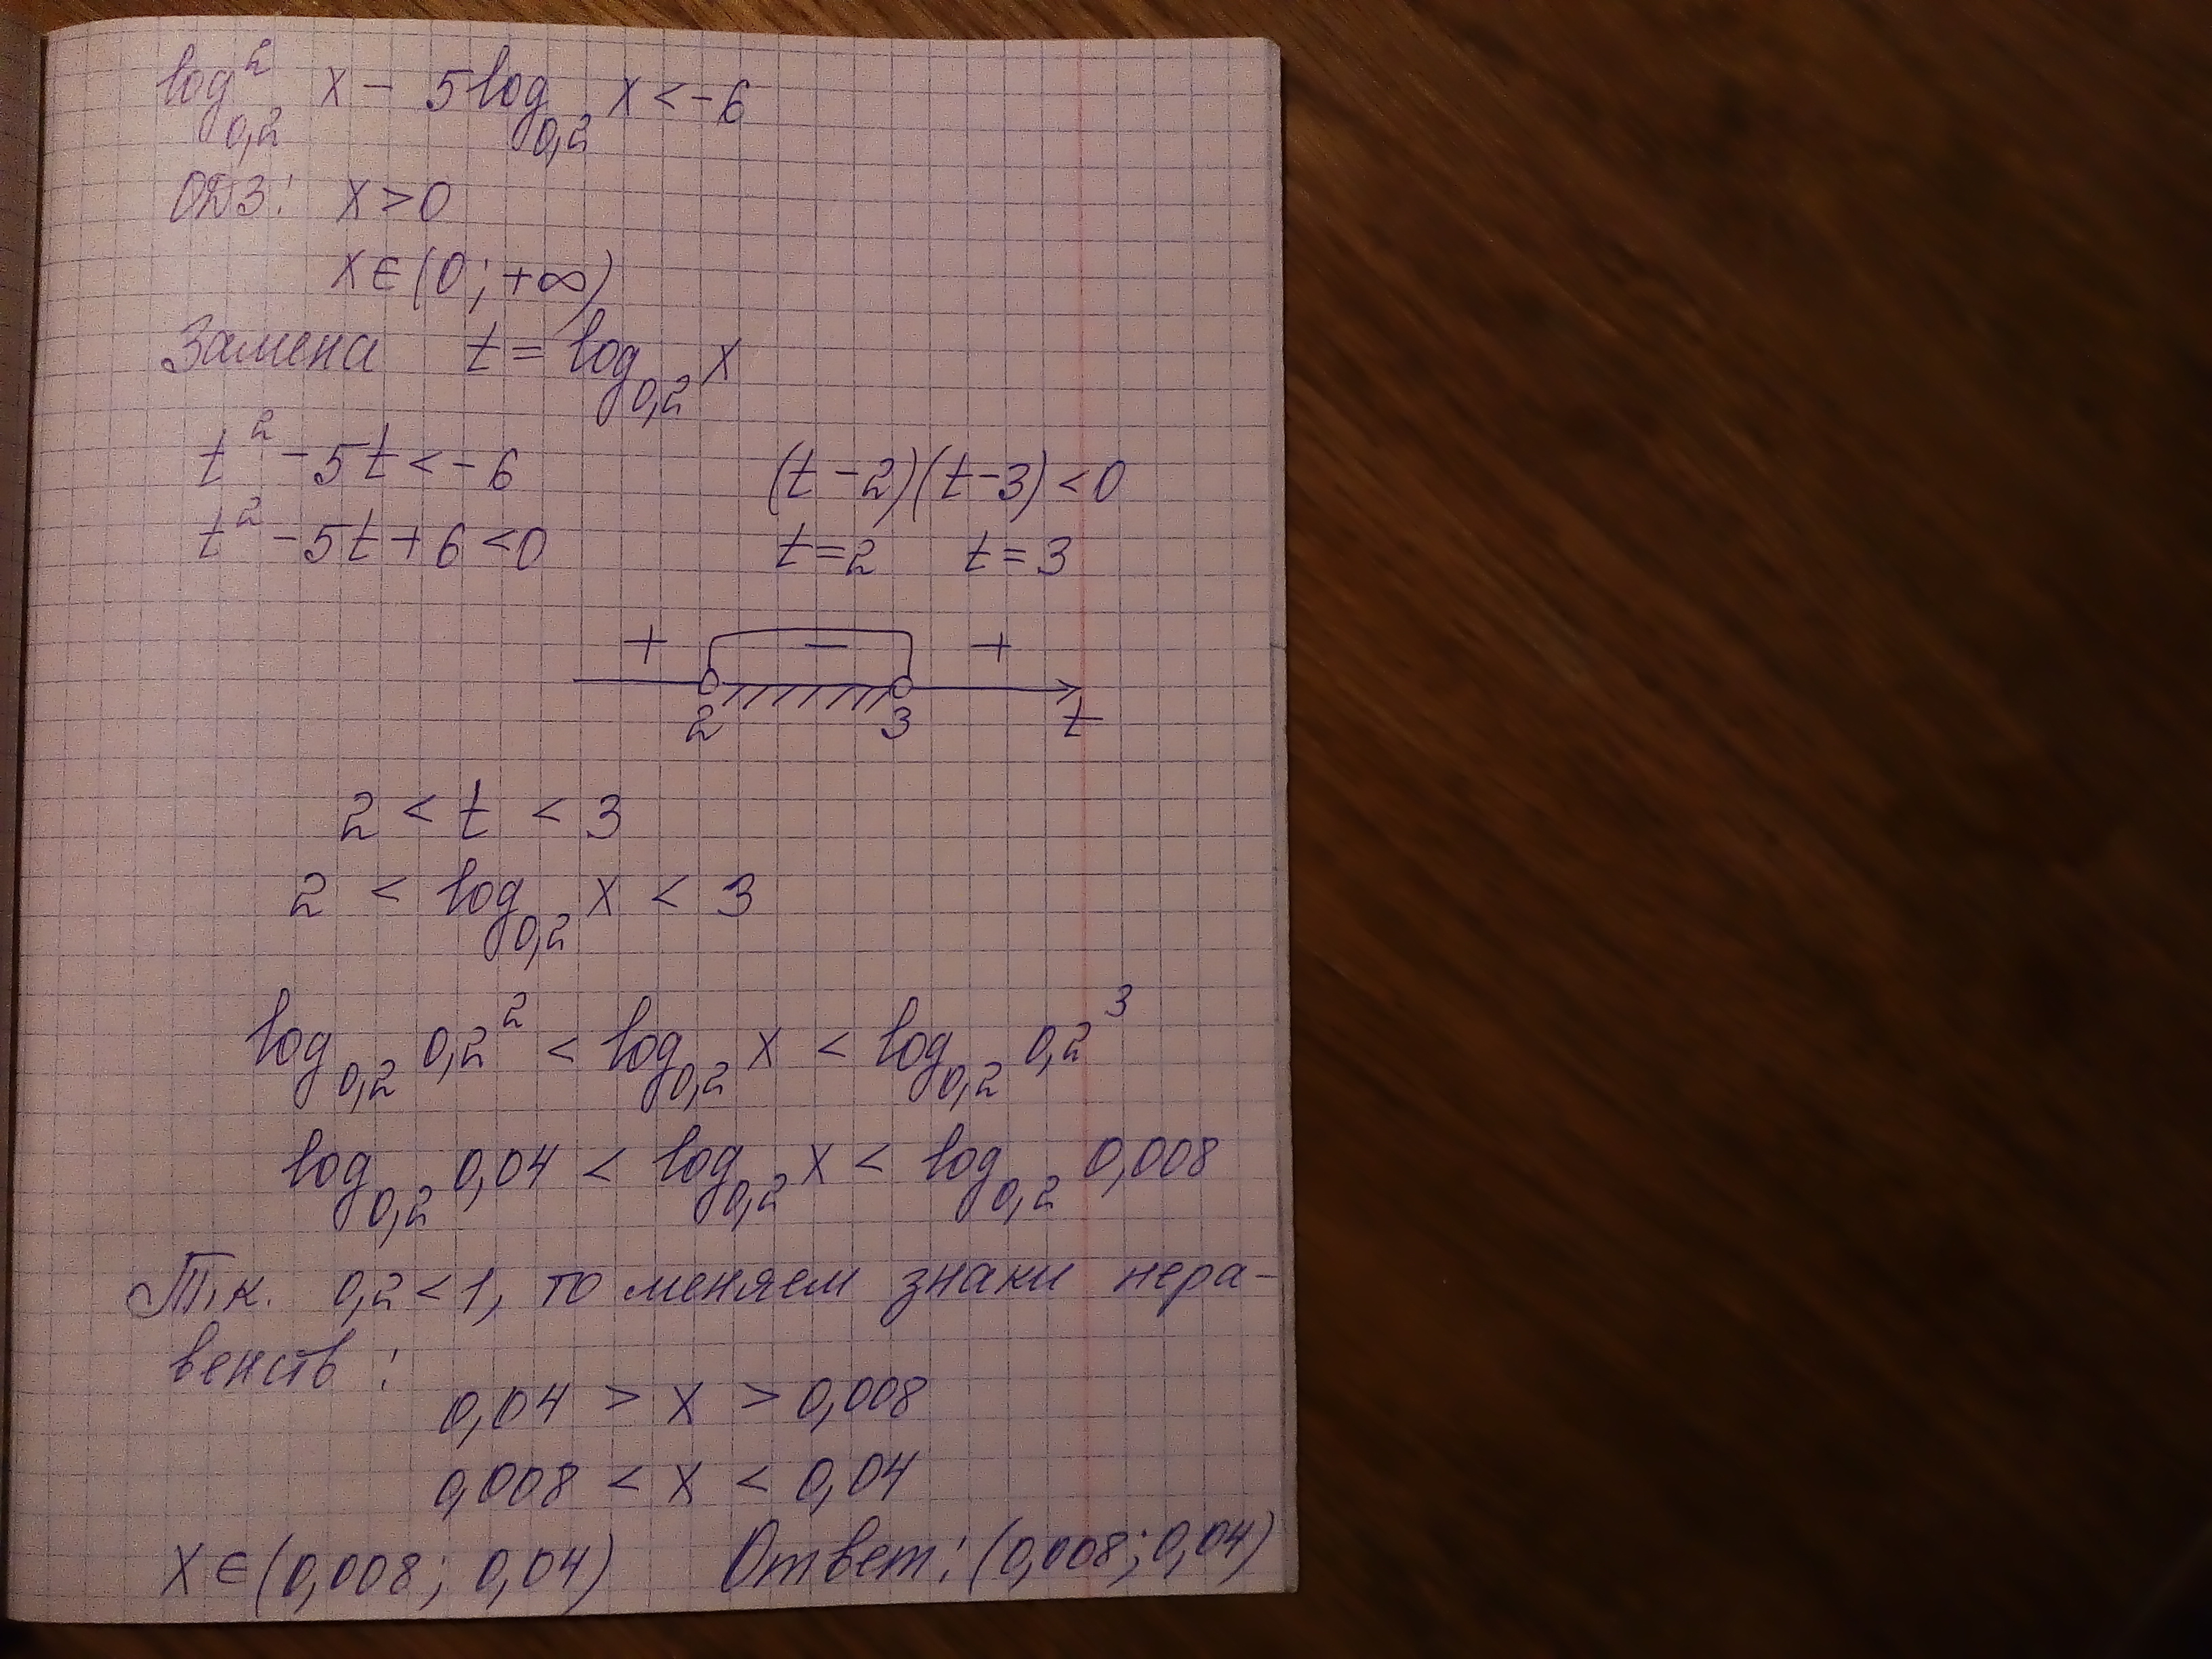 log²₀,₂ x - 5log₀,₂ x < -6
ОДЗ: x > 0
x ∈ (0; +∞)
Замена t = log₀,₂ x
t² - 5t < -6 (t - 2)(t - 3) < 0
t² - 5t + 6 < 0 t = 2 t = 3
+ - +
2 3 t
2 < t < 3
2 < log₀,₂ x < 3
log₀,₂ 0,2² < log₀,₂ x < log₀,₂ 0,2³
log₀,₂ 0,04 < log₀,₂ x < log₀,₂ 0,008
Т.к. 0,2 < 1, то меняем знаки нера-
венств:
0,04 > x > 0,008
0,008 < x < 0,04
x ∈ (0,008; 0,04) Ответ: (0,008; 0,04)